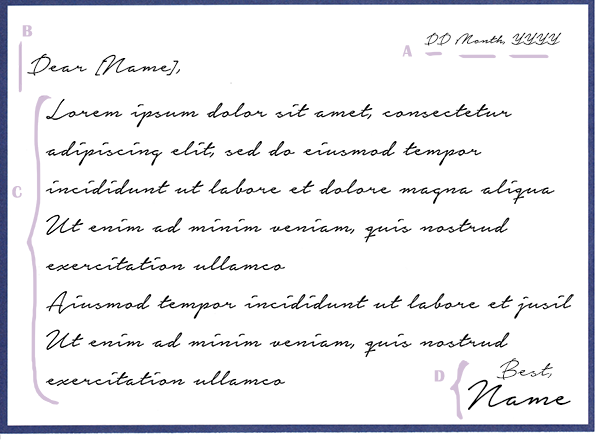 B
A DD Month, YYYY
Dear [Name],
C
Lorem ipsum dolor sit amet, consectetur
adipiscing elit, sed do eiusmod tempor
incididunt ut labore et dolore magna aliqua
Ut enim ad minim veniam, quis nostrud
exercitation ullamco
Aiusmod tempor incididunt ut labore et jusil
Ut enim ad minim veniam, quis nostrud
exercitation ullamco
D
Best,
Name